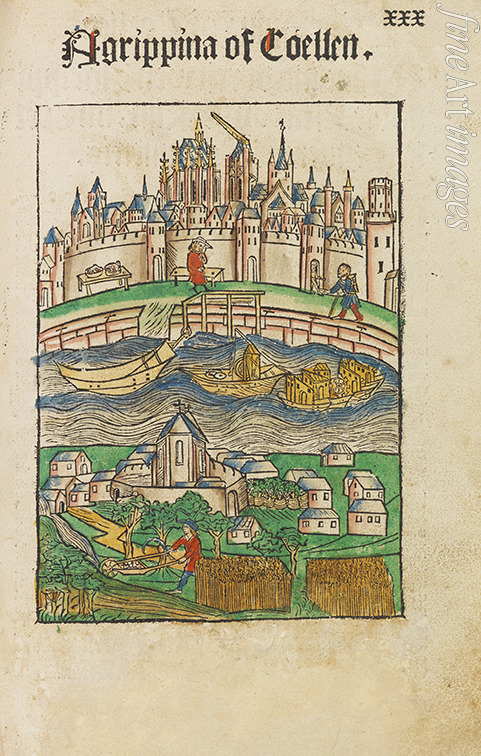 xxx
Agrippina of Coellen.
fineArtimages